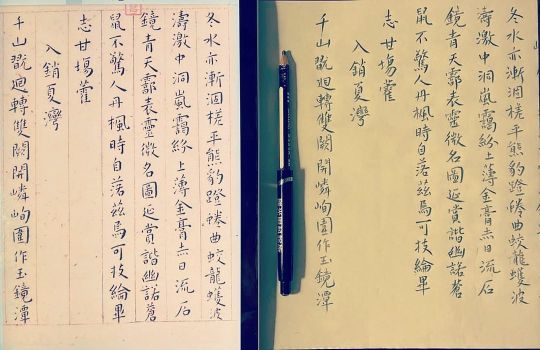 冬水亦漸涸槎平熊豹蹬蜷曲蛟龍蠖波
濤激中洞嵐靄紛上薄金膏赤日流石
鏡青天表靈微名圖延賞諧幽諾蒼
鼠不驚人丹楓時自落茲焉可投綸畢
志甘場藿
入銷夏灣
千山既迴轉雙闕開嶙峋圍作玉鏡潭
冬水亦漸涸槎平熊豹蹬蜷曲蛟龍蠖波
濤激中洞嵐靄紛上薄金膏赤日流石
鏡青天表靈微名圖延賞諧幽諾蒼
鼠不驚人丹楓時自落茲焉可投綸畢
志甘場藿
入銷夏灣
千山既迴轉雙闕開嶙峋圍作玉鏡潭